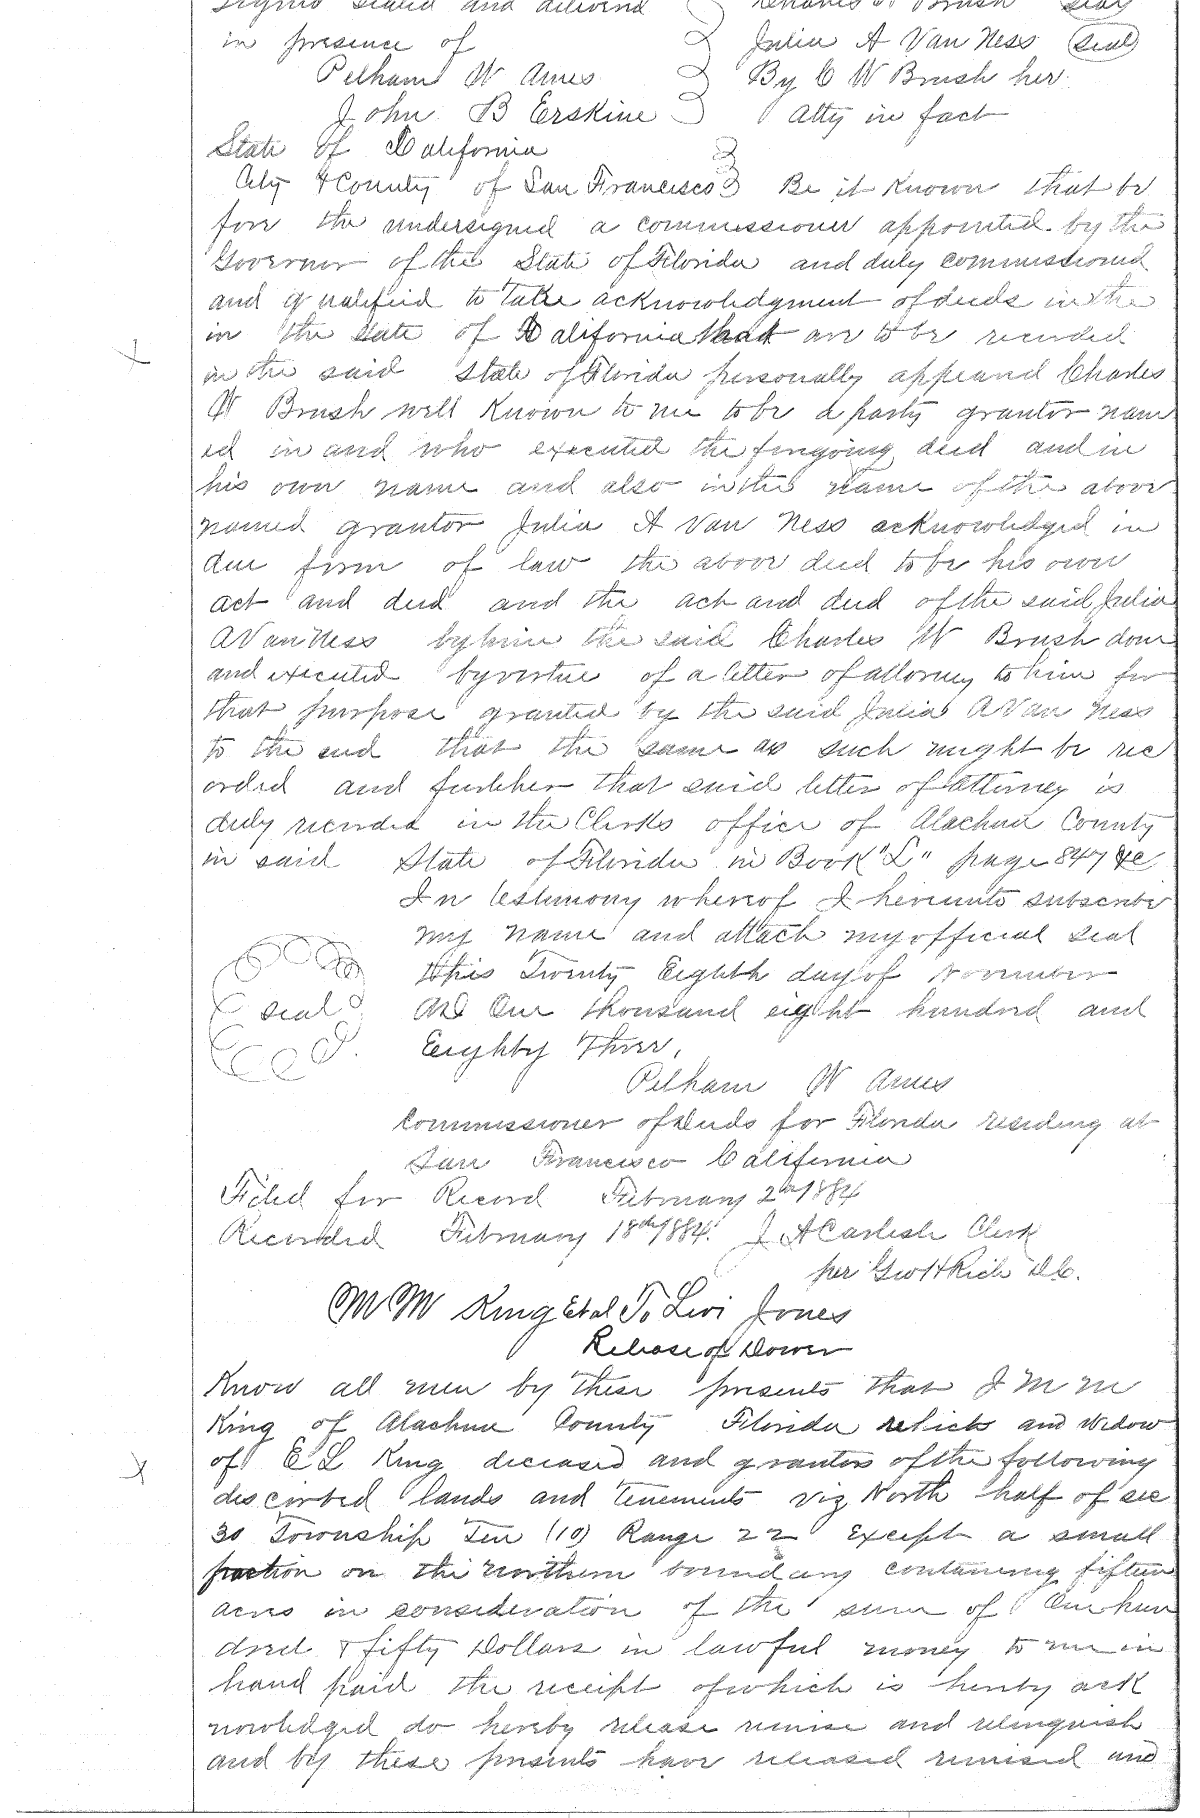 Signed sealed and delivered Charles W Brush (seal)
in presence of Julia A Van Ness (seal)
Pelham W Ames By C W Brush her
John B Erskine Atty in fact
State of California
City & County of San Francisco Be it Known that be
fore the undersigned a commissioner appointed by the
Governor of the State of Florida and duly commissioned
and qualified to take acknowledgment of deeds in the
in the state of California that are to be recorded
in the said State of Florida personally appeared Charles
W Brush well Known to me to be a party grantor nam
ed in and who executed the foregoing deed and in
his own name and also in the name of the above
named grantor Julia A Van Ness acknowledged in
due form of law the above deed to be his own
act and deed and the act and deed of the said Julia
A Van Ness by him the said Charles W Brush done
and executed by virtue of a letter of attorney to him for
that purpose granted by the said Julia A Van Ness
to the end that the same as such might be rec
orded and further that said letter of attorney is
duly recorded in the Clerks office of Alachua County
in said State of Florida in Book "L" page 847 &c
In testimony whereof I hereunto subscribe
my name and attach my official seal
this Twenty Eighth day of November
seal AD One thousand eight hundred and
Eighty Three,
Pelham W Ames
Commissioner of Deeds for Florida residing at
San Francisco California
Filed for Record February 2nd 1884
Recorded February 18th 1884. J A Carlisle Clerk
per Geo H Rich D.C.
M M King Et al To Levi Jones
Release of Dower
Know all men by these presents that I M M
King of Alachua County Florida relicts and Widow
of E L King deceased and grantors of the following
described lands and Tenements viz North half of sec
30 Township Ten (10) Range 22 Except a small
fraction on the northern boundary containing fifteen
acres in consideration of the sum of One hun
dred & fifty Dollars in lawful money to me in
hand paid the receipt of which is hereby ack
nowledged do hereby release remise and relinquish
and by these presents have released remised and